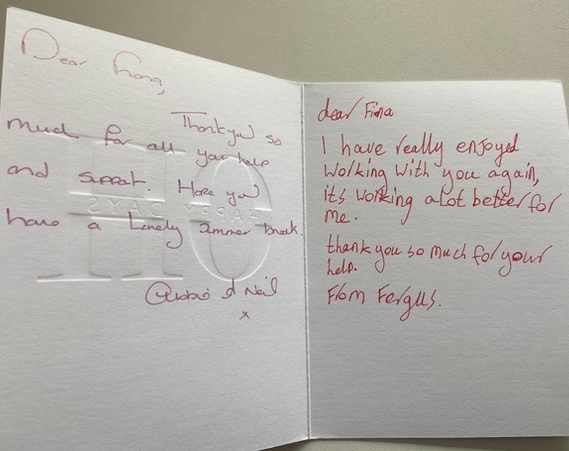 Dear Fiona,
Thank you so
much for all your help
and support. Hope you
have a Lovely Summer break.
& Neil
x
dear Fiona
I have really enjoyed
working with you again,
it's working alot better for
me.
thank you so much for your
help.
From Fergus.